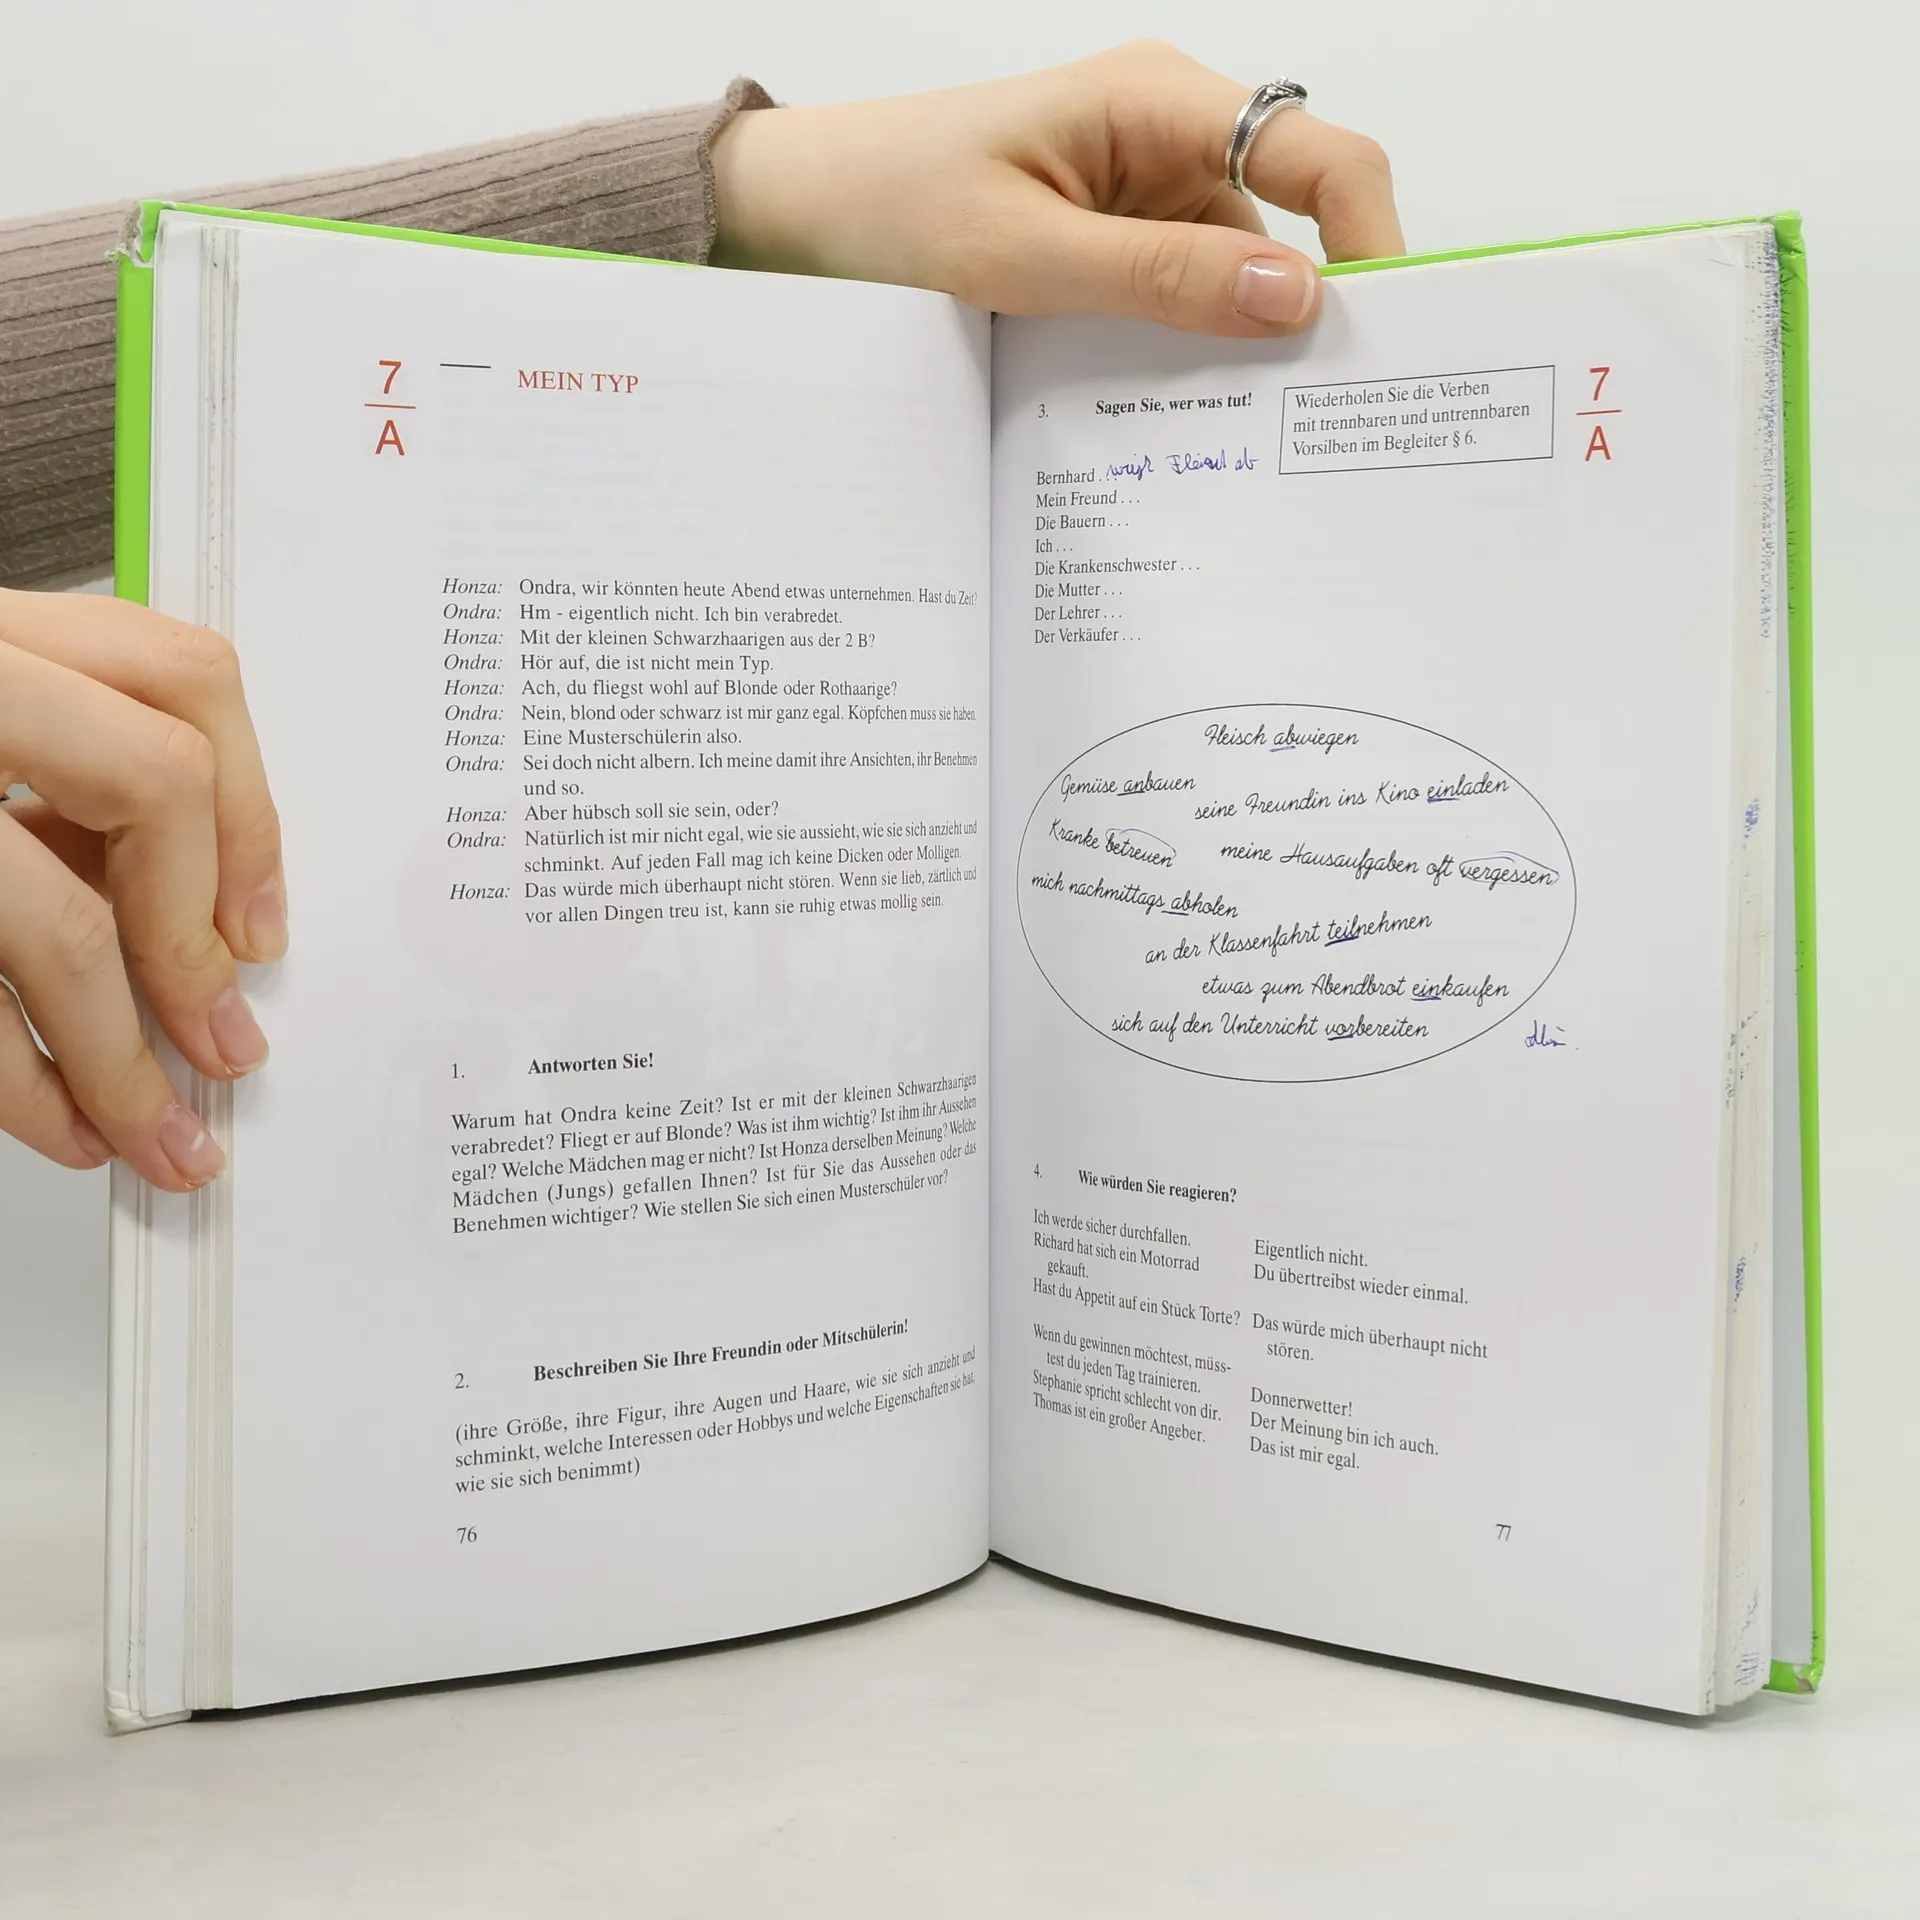 7
A
MEIN TYP
Honza: Ondra, wir könnten heute Abend etwas unternehmen. Hast du Zeit?
Ondra: Hm - eigentlich nicht. Ich bin verabredet.
Honza: Mit der kleinen Schwarzhaarigen aus der 2 B?
Ondra: Hör auf, die ist nicht mein Typ.
Honza: Ach, du fliegst wohl auf Blonde oder Rothaarige?
Ondra: Nein, blond oder schwarz ist mir ganz egal. Köpfchen muss sie haben.
Honza: Eine Musterschülerin also.
Ondra: Sei doch nicht albern. Ich meine damit ihre Ansichten, ihr Benehmen
und so.
Honza: Aber hübsch soll sie sein, oder?
Ondra: Natürlich ist mir nicht egal, wie sie aussieht, wie sie sich anzieht und
schminkt. Auf jeden Fall mag ich keine Dicken oder Molligen.
Honza: Das würde mich überhaupt nicht stören. Wenn sie lieb, zärtlich und
vor allen Dingen treu ist, kann sie ruhig etwas mollig sein.
1. Antworten Sie!
Warum hat Ondra keine Zeit? Ist er mit der kleinen Schwarzhaarigen
verabredet? Fliegt er auf Blonde? Was ist ihm wichtig? Ist ihm ihr Aussehen
egal? Welche Mädchen mag er nicht? Ist Honza derselben Meinung? Welche
Mädchen (Jungs) gefallen Ihnen? Ist für Sie das Aussehen oder das
Benehmen wichtiger? Wie stellen Sie sich einen Musterschüler vor?
2. Beschreiben Sie Ihre Freundin oder Mitschülerin!
(ihre Größe, ihre Figur, ihre Augen und Haare, wie sie sich anzieht und
schminkt, welche Interessen oder Hobbys und welche Eigenschaften sie hat,
wie sie sich benimmt)
76
3. Sagen Sie, wer was tut!
Wiederholen Sie die Verben
mit trennbaren und untrennbaren
Vorsilben im Begleiter § 6.
7
A
Bernhard . . Fleisch ab
Mein Freund . . .
Die Bauern . . .
Ich . . .
Die Krankenschwester . . .
Die Mutter . . .
Der Lehrer . . .
Der Verkäufer . . .
Fleisch abwiegen
Gemüse anbauen
seine Freundin ins Kino einladen
Kranke betreuen
meine Hausaufgaben oft vergessen
mich nachmittags abholen
an der Klassenfahrt teilnehmen
etwas zum Abendbrot einkaufen
sich auf den Unterricht vorbereiten
4. Wie würden Sie reagieren?
Ich werde sicher durchfallen.
Richard hat sich ein Motorrad
gekauft.
Hast du Appetit auf ein Stück Torte?
Wenn du gewinnen möchtest, müss-
test du jeden Tag trainieren.
Stephanie spricht schlecht von dir.
Thomas ist ein großer Angeber.
Eigentlich nicht.
Du übertreibst wieder einmal.
Das würde mich überhaupt nicht
stören.
Donnerwetter!
Der Meinung bin ich auch.
Das ist mir egal.
77